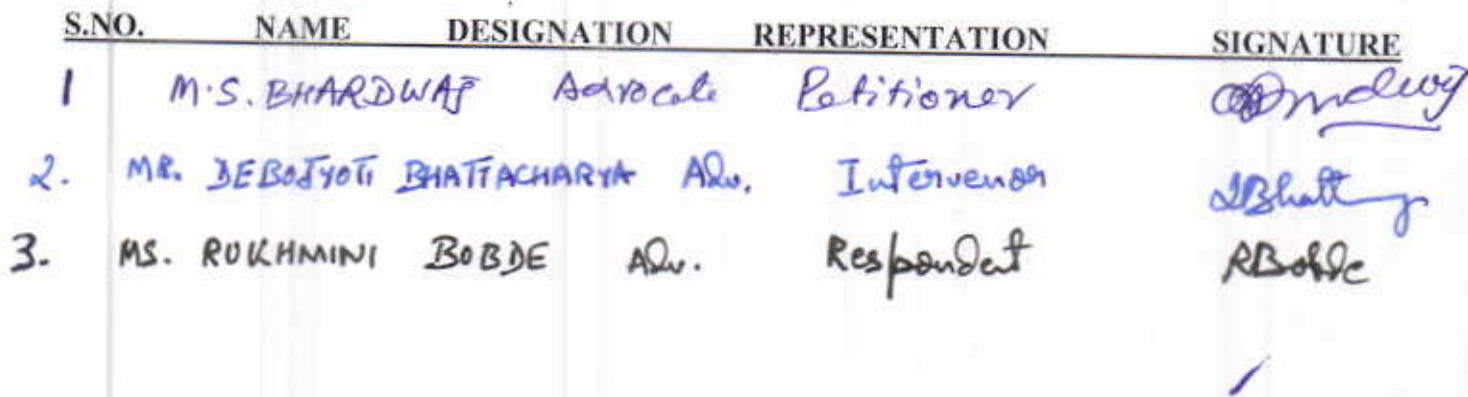 S.NO. NAME DESIGNATION REPRESENTATION SIGNATURE
1 M.S. BHARDWAJ Advocate Petitioner
2. MR. DEBOJYOTI BHATTACHARYA Adv. Intervenor DBhatt
3. MS. RUKHMINI BOBDE Adv. Respondent RBobde